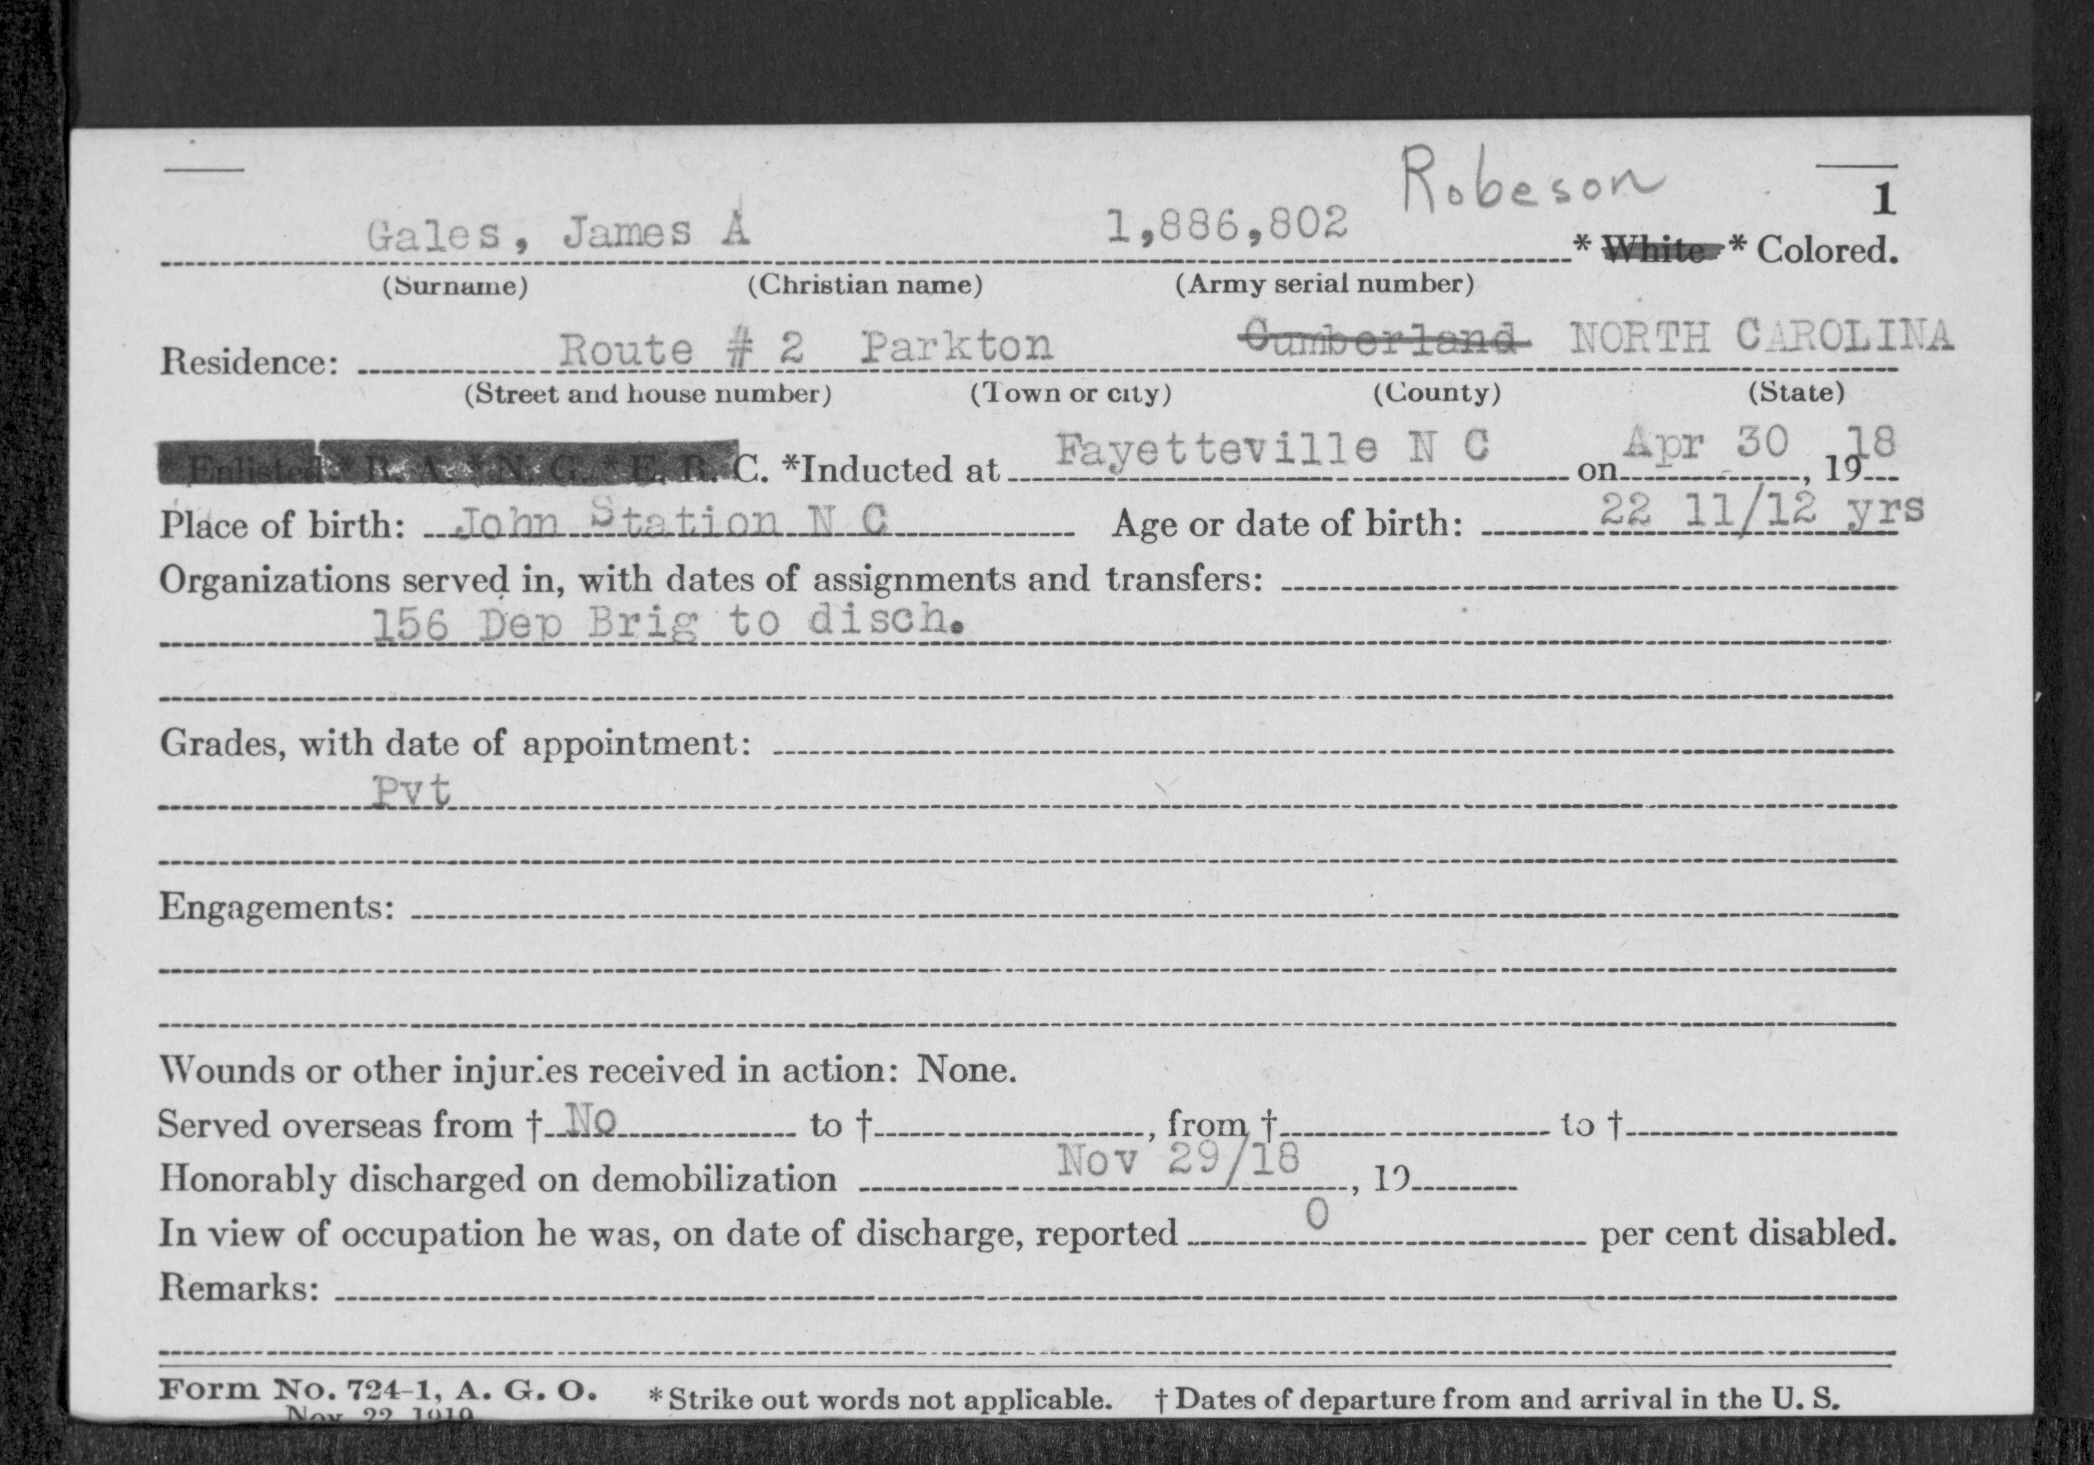 Robeson
1
Gales, James A 1,886,802 * White * Colored.
(Surname) (Christian name) (Army serial number)
Residence: Route # 2 Parkton Cumberland NORTH CAROLINA
(Street and house number) (Town or city) (County) (State)
* Enlisted * R. A. * N. G. * E. R. C. *Inducted at Fayetteville N C on Apr 30, 1918
Place of birth: John Station N C Age or date of birth: 22 11/12 yrs
Organizations served in, with dates of assignments and transfers:
156 Dep Brig to disch.
Grades, with date of appointment:
Pvt
Engagements:
Wounds or other injuries received in action: None.
Served overseas from † No to †, from † to †
Honorably discharged on demobilization Nov 29/18, 19
In view of occupation he was, on date of discharge, reported 0 per cent disabled.
Remarks:
Form No. 724-1, A. G. O. * Strike out words not applicable. † Dates of departure from and arrival in the U. S.
Nov. 22, 1919